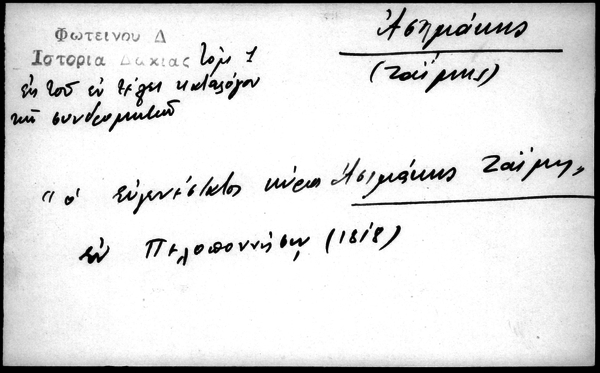 Φωτεινου Δ
Ιστορια Δακιας τόμ 1
εκ τοῦ ἐν τέλει καταλόγου
τῶν συνδρομητῶν
Ἀσημάκης
(Ζαΐμης)
"ὁ εὐγενέστατος κύριος Ἀσημάκης Ζαΐμης"
ἐν Πελοποννήσῳ (1818)